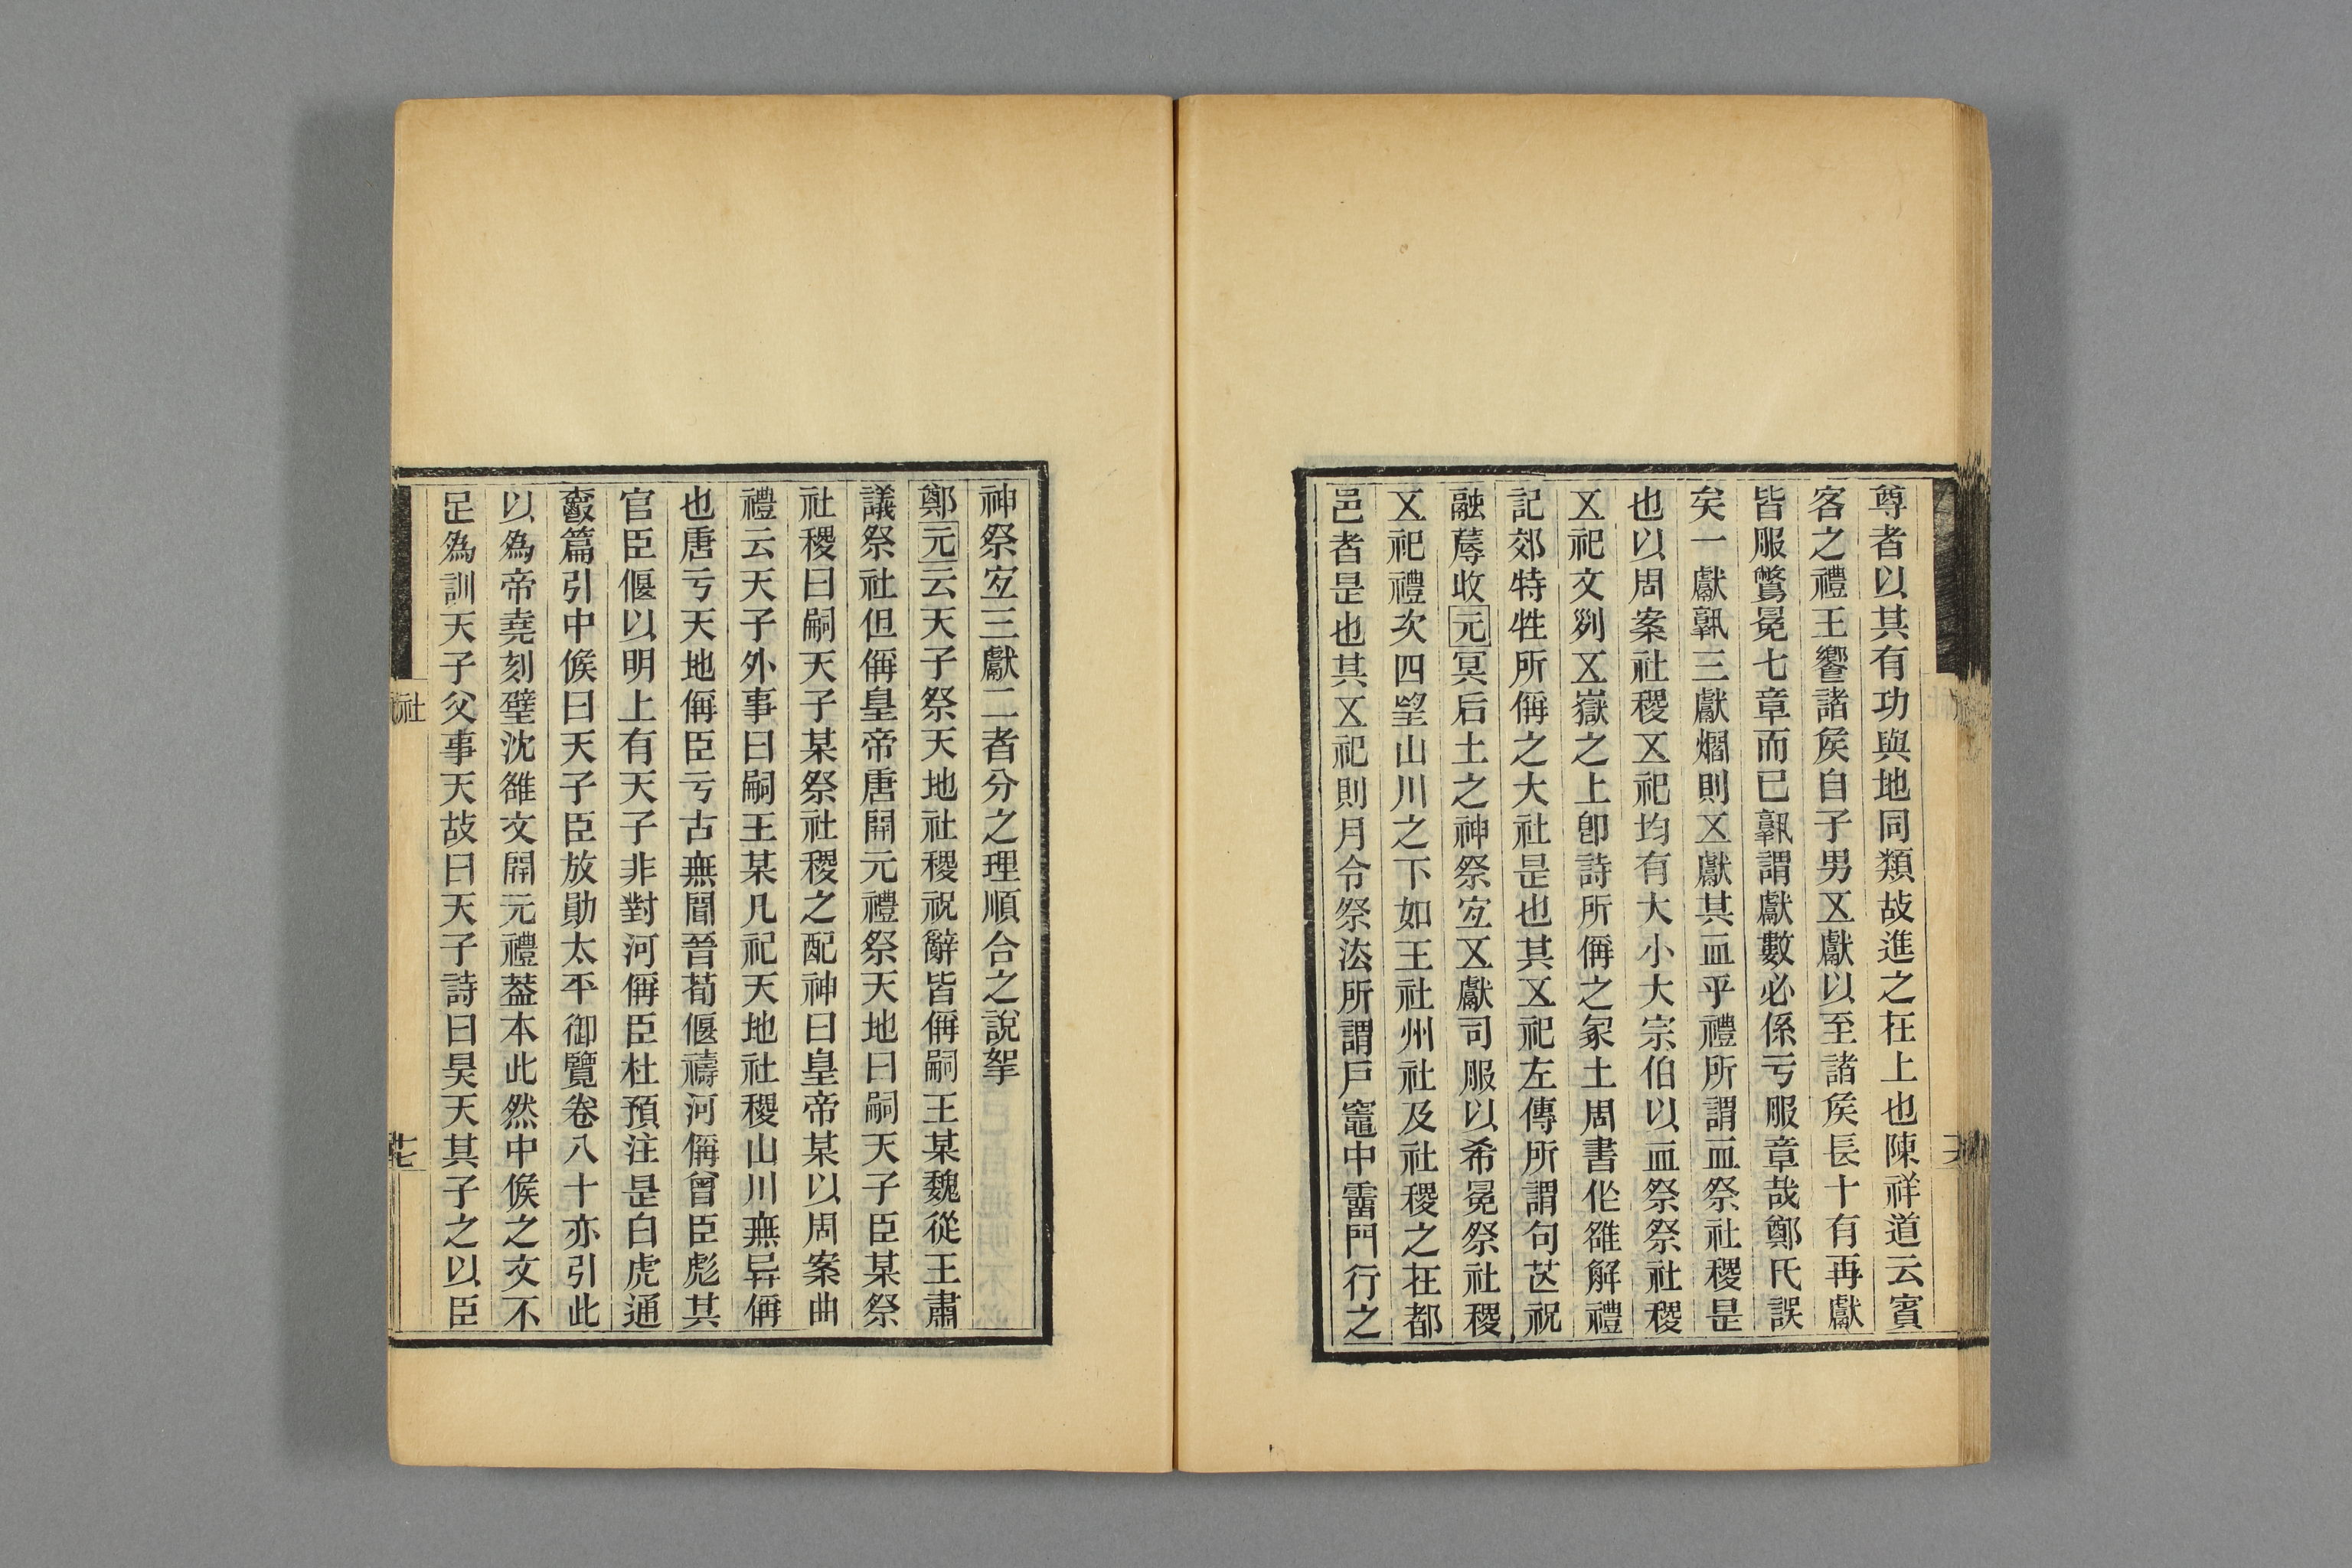 尊者以其有功與地同類故進之在上也陳祥道云賓
客之禮王饗諸矦自子男㐅獻以至諸矦長十有再獻
皆服鷩冕七章而已𤍨謂獻數必係亏服章哉鄭氏誤
矣一獻𤍨三獻爓則㐅獻其血乎禮所謂血祭社稷昰
也以周案社稷㐅祀均有大小大宗伯以血祭祭社稷
㐅祀文𠛱㐅嶽之上卽詩所偁之冢土周書作雒解禮
記郊特牲所偁之大社昰也其㐅祀左傳所謂句芒祝
融蓐收元冥后土之神祭宐㐅獻司服以希冕祭社稷
㐅祀禮次四朢山川之下如王社州社及社稷之在都
邑者昰也其㐅祀則月令祭法所謂戶竈中霤門行之
神祭宐三獻二者分之理順合之說挐
鄭元云天子祭天地社稷祝辭皆偁嗣王某魏從王肅
議祭社但偁皇帝唐開元禮祭天地曰嗣天子臣某祭
社稷曰嗣天子某祭社稷之配神曰皇帝某以周案曲
禮云天子外事曰嗣王某凡祀天地社稷山川無异偁
也唐亏天地偁臣亏古無聞晉荀偃禱河偁曾臣彪其
官臣偃以明上有天子非對河偁臣杜預注昰白虎通
爵篇引中候曰天子臣放勛太平御覽卷八十亦引此
以為帝堯刻璧沈雒文開元禮葢本此然中候之文不
足為訓天子父事天故曰天子詩曰昊天其子之以臣
社